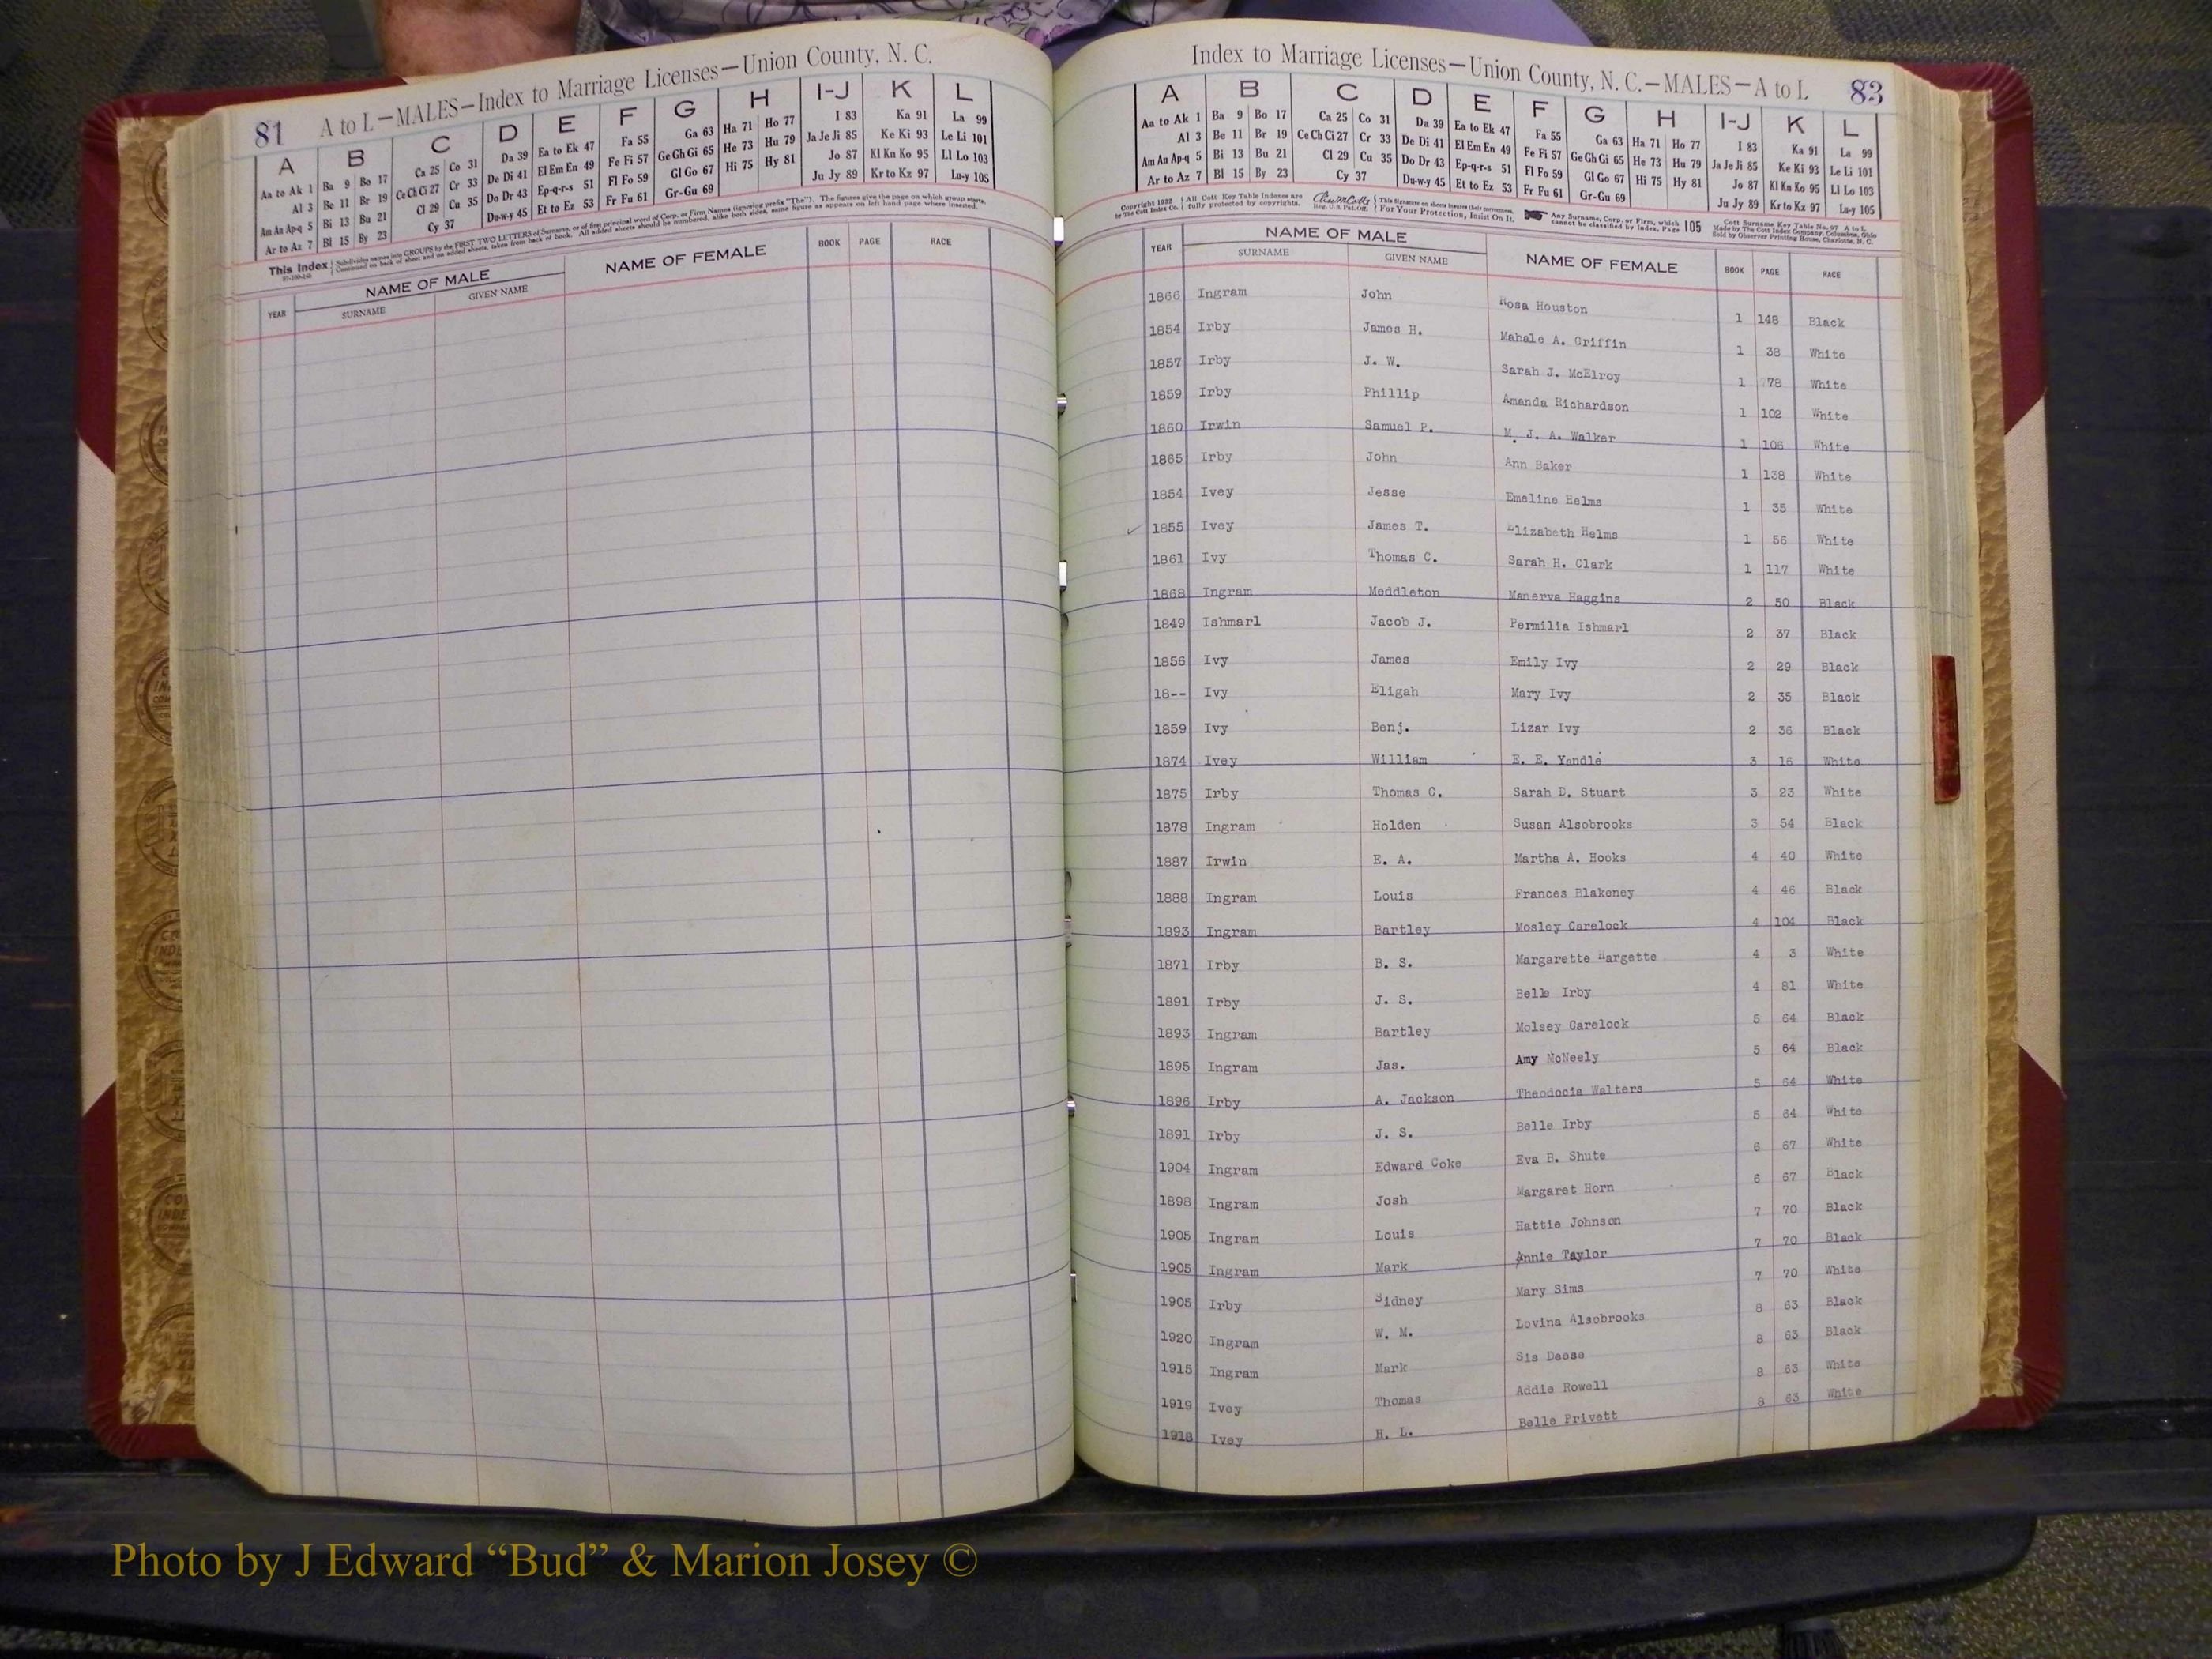 A to L—MALES—Index to Marriage Licenses—Union County, N. C.
81
A B C D E F G H I-J K L
Aa to Ak 1 Ba 9 Bo 17 Ca 25 Co 31 Da 39 Ea to Ek 47 Fa 55 Ga 63 Ha 71 Ho 77 I 83 Ka 91 La 99
Al 3 Be 11 Br 19 Ce Ch Ci 27 Cr 33 De Di 41 El Em En 49 Fe Fi 57 Ge Gh Gi 65 He 73 Hu 79 Ja Je Ji 85 Ke Ki 93 Le Li 101
Am An Ap-q 5 Bi 13 Bu 21 Cl 29 Cu 35 Do Dr 43 Ep-q-r-s 51 Fl Fo 59 Gl Go 67 Hi 75 Hy 81 Jo 87 Kl Kn Ko 95 Ll Lo 103
Ar to Az 7 Bl 15 By 23 Cy 37 Du-w-y 45 Et to Ez 53 Fr Fu 61 Gr-Gu 69 Ju Jy 89 Kr to Kz 97 Lu-y 105
This Index Subdivides names into GROUPS by the FIRST TWO LETTERS of Surname, or of first principal word of Corp. or Firm Names (ignoring prefix "The"). The figures give the page on which group starts.
Continued on back of sheet and on added sheets, taken from back of book. All added sheets should be numbered, alike both sides, same figure as appears on left hand page where inserted.
YEAR NAME OF MALE NAME OF FEMALE BOOK PAGE RACE
SURNAME GIVEN NAME
Index to Marriage Licenses—Union County, N. C.—MALES—A to L 83
A B C D E F G H I-J K L
Aa to Ak 1 Ba 9 Bo 17 Ca 25 Co 31 Da 39 Ea to Ek 47 Fa 55 Ga 63 Ha 71 Ho 77 I 83 Ka 91 La 99
Al 3 Be 11 Br 19 Ce Ch Ci 27 Cr 33 De Di 41 El Em En 49 Fe Fi 57 Ge Gh Gi 65 He 73 Hu 79 Ja Je Ji 85 Ke Ki 93 Le Li 101
Am An Ap-q 5 Bi 13 Bu 21 Cl 29 Cu 35 Do Dr 43 Ep-q-r-s 51 Fl Fo 59 Gl Go 67 Hi 75 Hy 81 Jo 87 Kl Kn Ko 95 Ll Lo 103
Ar to Az 7 Bl 15 By 23 Cy 37 Du-w-y 45 Et to Ez 53 Fr Fu 61 Gr-Gu 69 Ju Jy 89 Kr to Kz 97 Lu-y 105
Copyright 1922 by The Cott Index Co. All Cott Key Table Indexes are fully protected by copyrights. Reg. U. S. Pat. Off. This Signature on sheets insures their correctness. For Your Protection, Insist On It. Any Surname, Corp. or Firm, which cannot be classified by Index, Page 105 Cott Surname Key Table No. 97 A to L Made by The Cott Index Company, Columbus, Ohio Sold by Observer Printing House, Charlotte, N. C.
YEAR NAME OF MALE NAME OF FEMALE BOOK PAGE RACE
SURNAME GIVEN NAME
1866 Ingram John Rosa Houston 1 148 Black
1854 Irby James H. Mahale A. Griffin 1 38 White
1857 Irby J. W. Sarah J. McElroy 1 78 White
1859 Irby Phillip Amanda Richardson 1 102 White
1860 Irwin Samuel P. M. J. A. Walker 1 106 White
1865 Irby John Ann Baker 1 138 White
1854 Ivey Jesse Emeline Helms 1 35 White
1855 Ivey James T. Elizabeth Helms 1 56 White
1861 Ivy Thomas C. Sarah H. Clark 1 117 White
1868 Ingram Meddleton Manerva Haggins 2 50 Black
1849 Ishmarl Jacob J. Permilia Ishmarl 2 37 Black
1856 Ivy James Emily Ivy 2 29 Black
18-- Ivy Eligah Mary Ivy 2 35 Black
1859 Ivy Benj. Lizar Ivy 2 36 Black
1874 Ivey William E. E. Yandle 3 16 White
1875 Irby Thomas C. Sarah D. Stuart 3 23 White
1878 Ingram Holden Susan Alsobrooks 3 54 Black
1887 Irwin E. A. Martha A. Hooks 4 40 White
1888 Ingram Louis Frances Blakeney 4 46 Black
1893 Ingram Bartley Mosley Carelock 4 104 Black
1871 Irby B. S. Margarette Hargette 4 3 White
1891 Irby J. S. Belle Irby 4 81 White
1893 Ingram Bartley Molsey Carelock 5 64 Black
1895 Ingram Jas. Amy McNeely 5 64 Black
1896 Irby A. Jackson Theodocia Walters 5 64 White
1891 Irby J. S. Belle Irby 5 64 White
1904 Ingram Edward Coke Eva B. Shute 6 67 White
1898 Ingram Josh Margaret Horn 6 67 Black
1905 Ingram Louis Hattie Johnson 7 70 Black
1905 Ingram Mark Annie Taylor 7 70 Black
1905 Irby Sidney Mary Sims 7 70 White
1920 Ingram W. M. Lovina Alsobrooks 8 63 Black
1915 Ingram Mark Sis Deese 8 63 Black
1919 Ivey Thomas Addie Rowell 8 63 White
1918 Ivey H. L. Belle Privett 8 63 White
Photo by J Edward “Bud” & Marion Josey ©